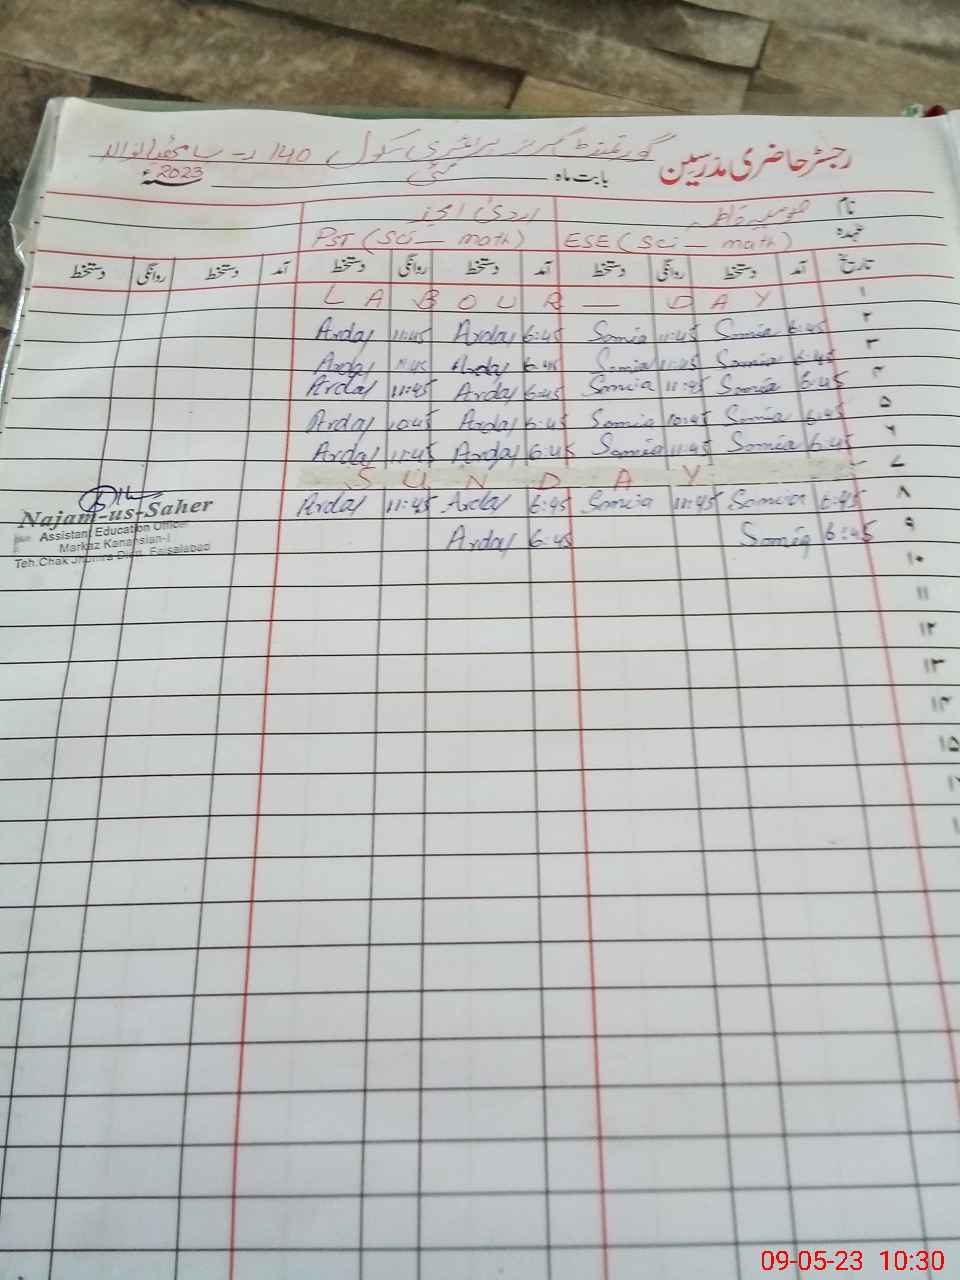 رجسٹر حاضری مدرسین
گورنمنٹ گرلز پرائمری سکول 140 ر-ب
بابت ماہ مئی 2023ء
نام
عہدہ ESE (Sci – math) PST (Sci – math)
تاریخ آمد دستخط روانگی دستخط آمد دستخط روانگی دستخط آمد دستخط روانگی دستخط
۱ LABOUR – DAY
۲ 6:45 Somia 11:45 Somia 6:45 Arday 11:45 Arday
۳ 6:45 Somia 11:45 Somia 6:45 Arday 11:45 Arday
۴ 6:45 Somia 11:45 Somia 6:45 Arday 11:45 Arday
۵ 6:45 Somia 10:45 Somia 6:45 Arday 10:45 Arday
۶ 6:45 Somia 11:45 Somia 6:45 Arday 11:45 Arday
۷ SUNDAY
۸ 6:45 Somia 11:45 Somia 6:45 Arday 11:45 Arday
۹ 6:45 Somia 6:45 Arday
Najam-us-Saher
Assistant Education Officer
Markaz Kanansian-I
Teh.Chak Jhumra Distt. Faisalabad
۱۰
۱۱
۱۲
۱۳
۱۴
۱۵
09-05-23 10:30